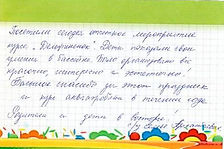 Посетили сегодня отчетное мероприятие
курса „Дельфинёнок". Дети показали свои
умения в бассейне. Было организовано всё
красочно, интересно и эстетично!
Большое спасибо за этот праздник
и курс аквааэробики в течении года.
Родители и дети в восторге.